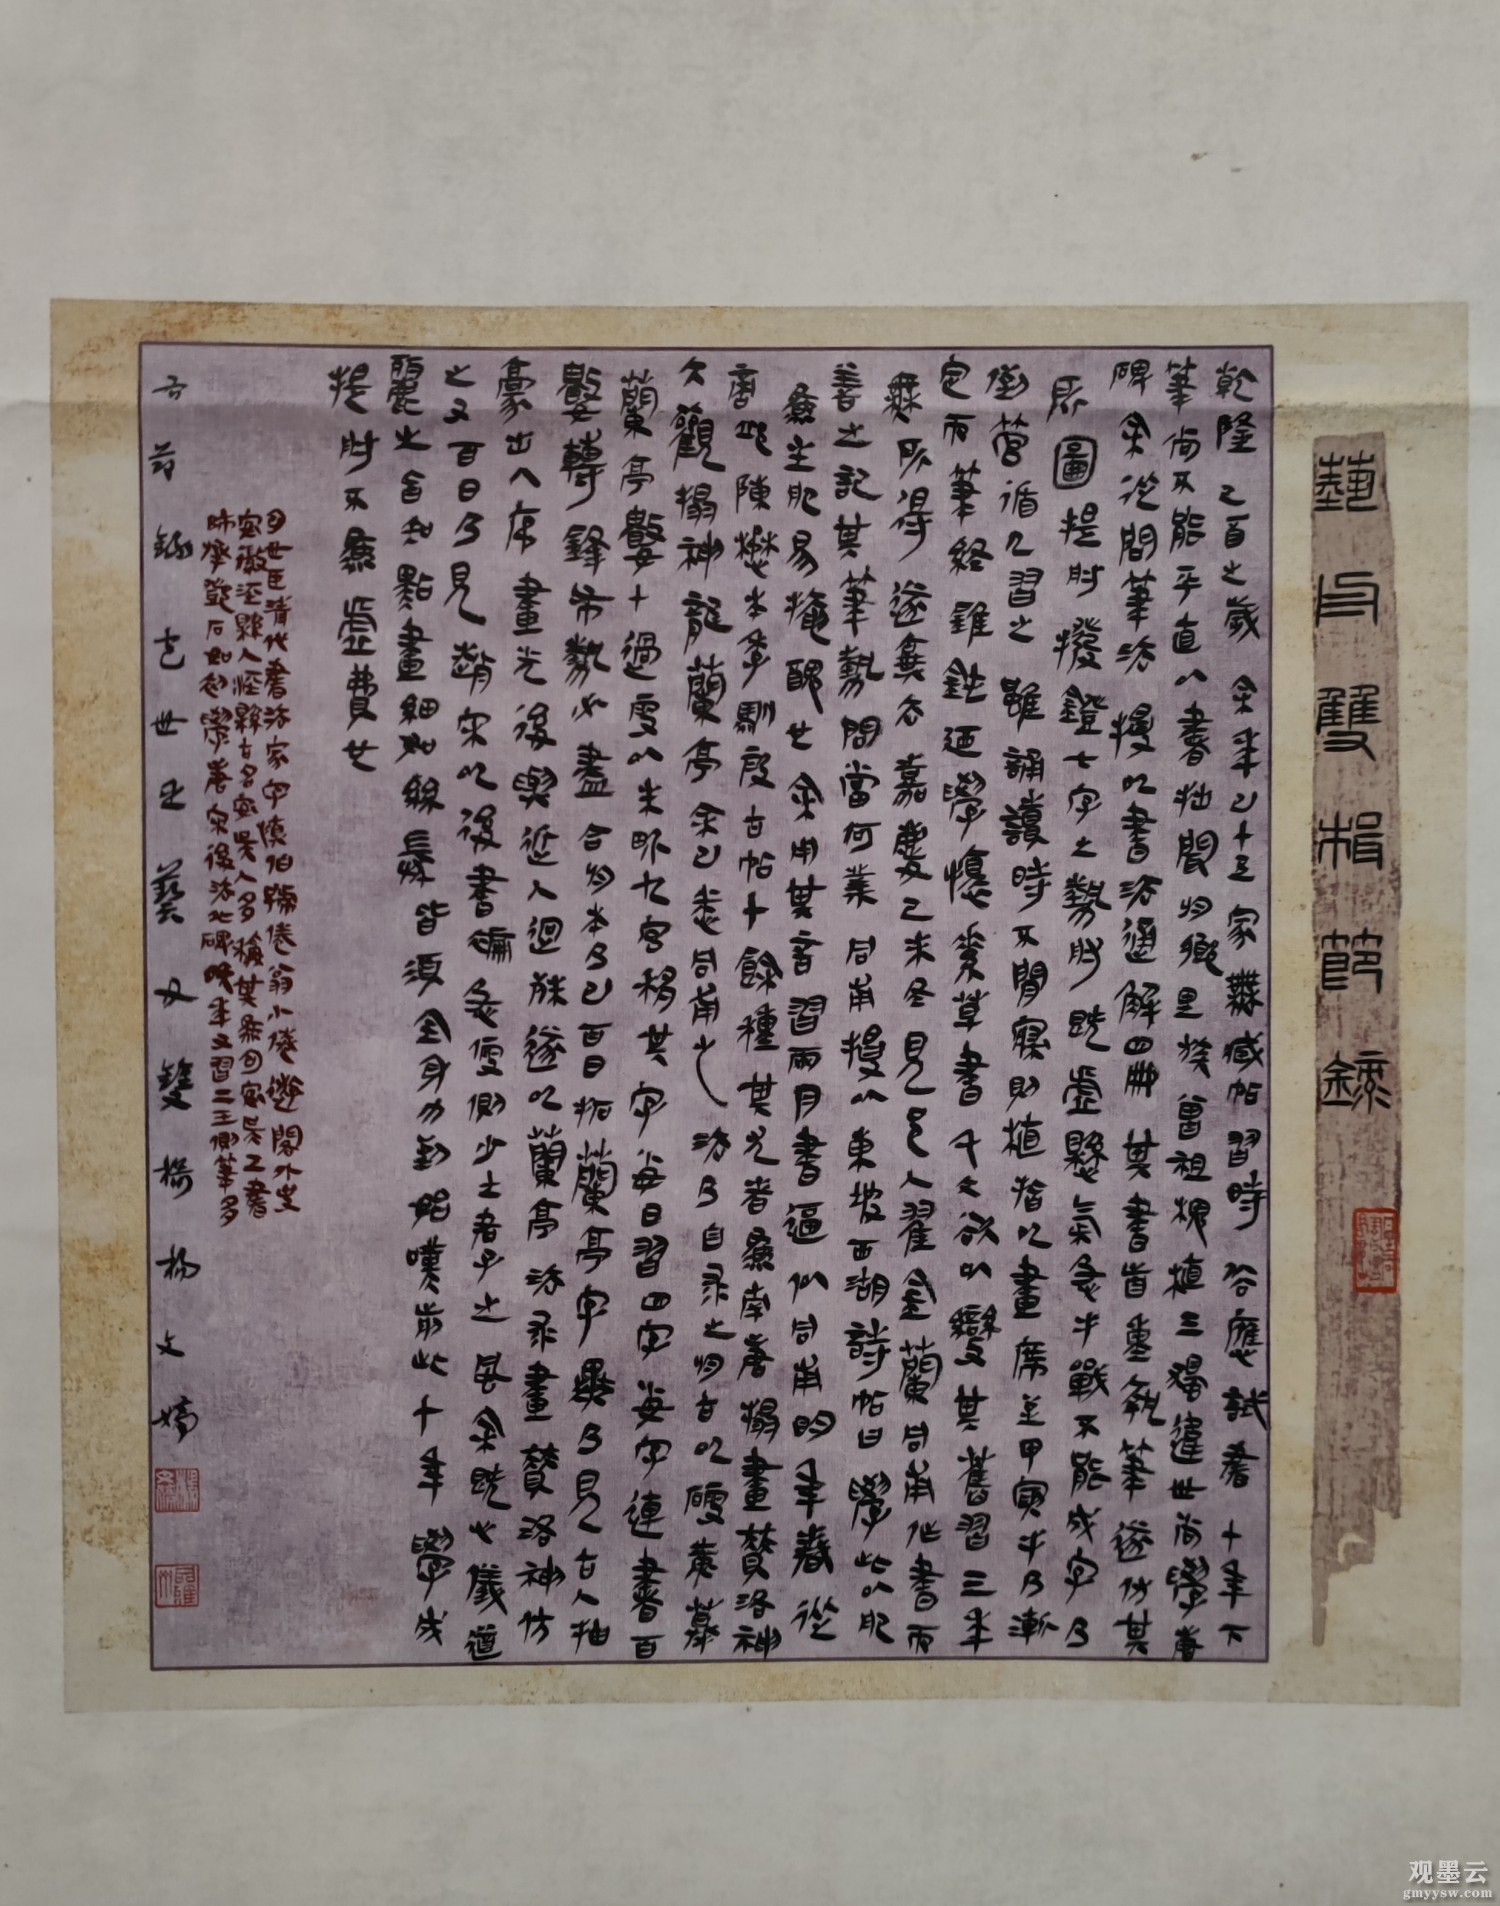 藝舟雙楫節錄
乾隆己酉之歲余年已十五家無藏帖習時俗應試書十年下
筆尚不能平直以書拙聞於鄉里族曾祖槐植三獨違世尚學唐
碑余從問筆法授以書法通解四冊其書首重執筆遂仿其
所圖提肘撥鐙七字之勢肘既虛懸氣急手戰不能成字乃
倒管循几習之雖誦讀時不閒寢則植指以畫席至甲寅手乃漸
定而筆終稚鈍迺學懷素草書千文欲以變其舊習三年
無所得遂棄去嘉慶己未冬見邑人翟金蘭同甫作書而
善之記其筆勢問當何業同甫授以東坡西湖詩帖曰學此以肥
為主肥易掩醜也余用其言習兩月書逼似同甫明年春從
商邱陳懋本季馴假古帖十餘種其尤者為南唐搨畫贊洛神
大觀搨神龍蘭亭余已悉同甫之法乃自求之於古以硬黃摹
蘭亭數十過更以朱界九宮移其字每日習四字每字連書百
數轉鋒布勢必盡合於本乃已百日拓蘭亭字畢乃見古人抽
豪出入序畫先後與近人迥殊遂以蘭亭法求畫贊洛神仿
之又百日乃見趙宋以後書褊急便側少士君子之風余既心儀遒
麗之旨知點畫細如絲髮皆須全身力到始嘆前此十年學成
提肘不為虛費也
包世臣清代書法家字慎伯號倦翁小倦遊閣外史
安徽涇縣人涇縣古名安吳人多稱其為包安吳工書
師承鄧石如初學唐宋後法北碑晚年又習二王側筆多
右節錄包世臣藝舟雙楫楊文婷
观墨云
gmyysw.com